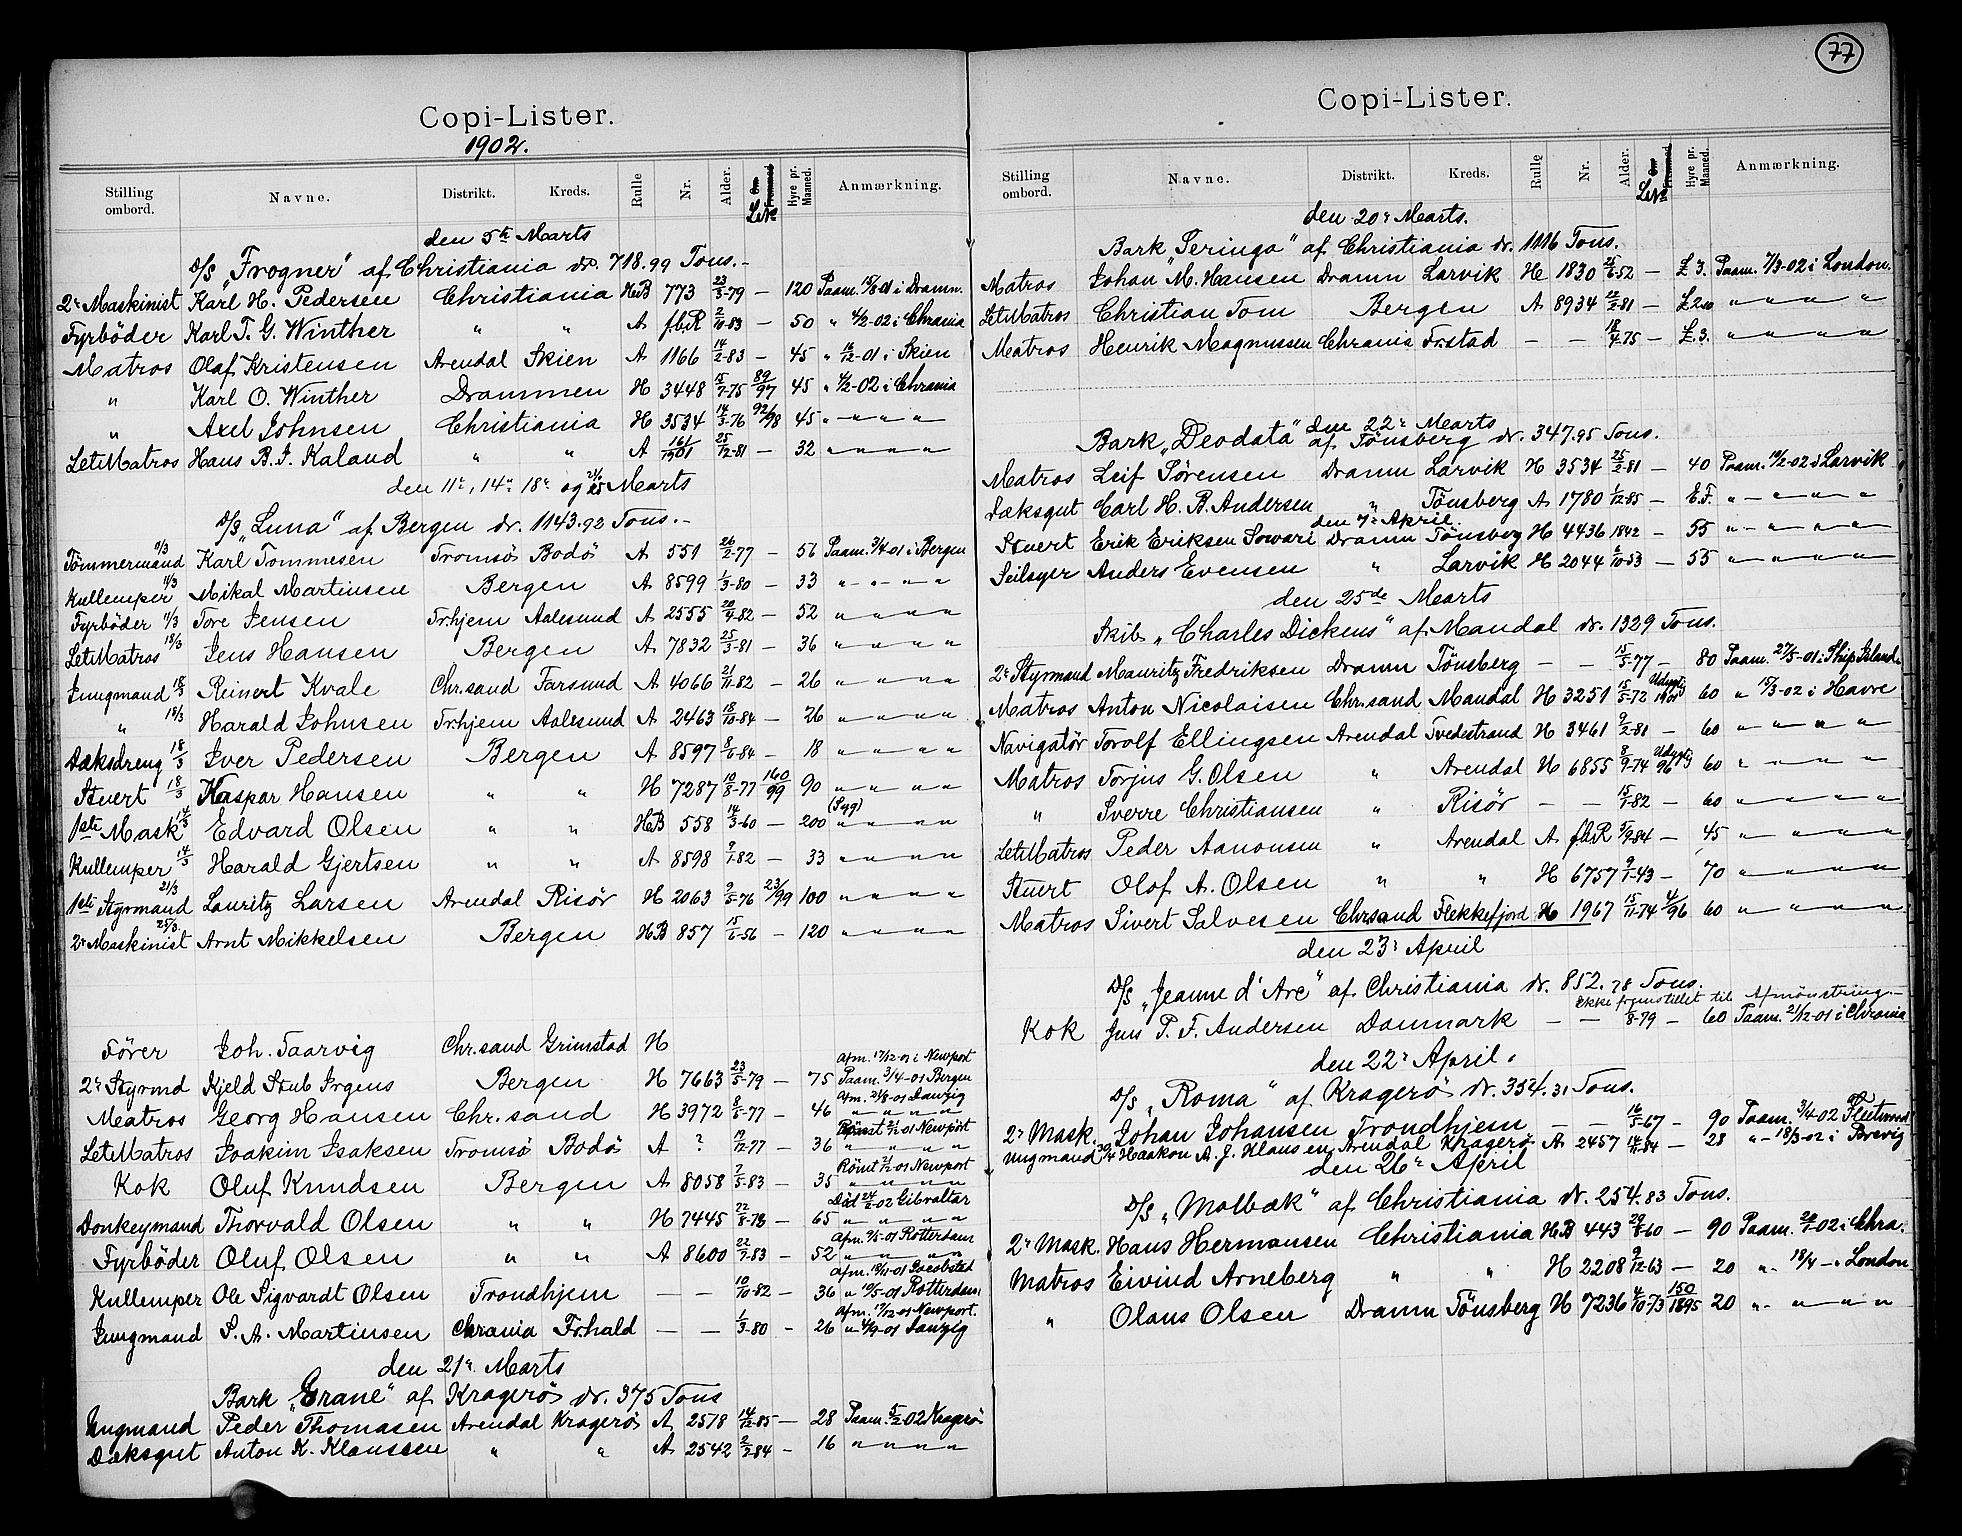 77
Copi-Lister.
1902.
Stilling ombord. Navne. Distrikt. Kreds. Rulle Nr. Alder. Let№ Hyre pr. Maaned. Anmærkning.
den 5te Marts
D/S „Frogner“ af Christiania dr. 718.99 Tons.-
2n Maskinist Karl H. Pedersen Christiania HB 773 23/3-79 — 120 Paam. 15/8-01 i Dramn.
Fyrbøder Karl T. G. Winther " " A fbR 2/10-83 — 50 " 4/2-02 i Chrania
Matros Olaf Kristensen Arendal Skien A 1166 14/2-83 — 45 " 16/12-01 i Skien
" Karl O. Winther Drammen H 3448 15/7-75 89/97 45 " 4/2-02 i Chrania
" Axel Johnsen Christiania H 3534 14/3-76 92/98 45 " " " "
LetMatros Hans B. J. Kaland " " A 161/1901 25/12-81 — 32 " " " "
den 11te, 14n 18n og 21/25 Marts
D/S „Luna“ af Bergen dr. 1143.92 Tons.-
Tømmermand 11/3 Karl Tommesen Tromsø Bodø A 551 26/2-77 — 56 Paam. 3/4-01 i Bergen
Kullemper 11/3 Mikal Martinsen Bergen A 8599 1/3-80 — 33 " " " "
Fyrbøder 11/3 Tore Jensen Trhjem Aalesund A 2555 20/4-82 — 52 " " " "
LetMatros 18/3 Jens Hansen Bergen A 7832 25/3-81 — 36 " " " "
Jungmand 18/3 Reinert Kvale Chr.sand Farsund A 4066 21/11-82 — 26 " " " "
" 18/3 Harald Johnsen Trhjem Aalesund A 2463 18/10-84 — 26 " " " "
Dæksdreng 18/3 Iver Pedersen Bergen A 8597 8/6-84 — 18 " " " "
Stuert 18/3 Kaspar Hansen " " H 7287 10/8-77 160/99 90 " " " "
1ste Mask 14/3 Edvard Olsen " " HB 558 14/3-60 — 200 (Syg) " " " "
Kullemper 14/3 Harald Gjertsen " " A 8598 9/1-82 — 33 " " " "
1ste Styrmand 21/3 Lauritz Larsen Arendal Risør H 2063 9/5-76 23/99 100 " " " "
2n Maskinist 25/3 Arnt Mikkelsen Bergen HB 857 15/6-56 — 120 " " " "
Fører Joh. Taarvig Chr.sand Grimstad H
Afm. 17/12-01 i Newport
2n Styrmd Kjeld Stub Irgens Bergen H 7663 23/5-79 — 75 Paam. 3/4-01 Bergen
Afm. 21/8-01 Danzig
Matros Georg Hansen Chr.sand H 3972 8/5-77 — 46 " " " "
Rømt 21/12-01 Newport
LetMatros Joakim Isaksen Tromsø Bodø A ? 19/12-77 — 36 " " " "
Rømt 21/12-01 Newport
Kok Oluf Knudsen Bergen A 8058 7/5-83 — 35 " " " "
Død 24/2-02 Gibraltar
Donkeymand Thorvald Olsen " " H 7445 22/8-78 — 65 " " " "
Afm. 9/5-01 Rotterdam
Fyrbøder Oluf Olsen " " A 8600 22/7-83 — 52 " " " "
Afm. 18/11-01 Jacobstad
Kullemper Ole Sigvardt Olsen Trondhjem — — 10/10-82 — 36 " 10/5-01 Rotterdam
Afm. 17/12-01 Newport.
Jungmand S. A. Martinsen Chrania Frhald — — 1/3-80 — 26 " 4/9-01 Danzig
den 21n Marts
Bark „Grane“ af Kragerø dr. 375 Tons
Ungmand Peder Thomasen Arendal Kragerø A 2578 14/12-85 — 28 Paam. 5/2-02 Kragerø
Dæksgut Anton K. Klaussen " " A 2542 2/2-84 — 16 " " " "
Copi-Lister.
Stilling ombord. Navne. Distrikt. Kreds. Rulle Nr. Alder. Let№ Hyre pr. Maaned. Anmærkning.
den 20n Marts.
Bark „Seringa“ af Christiania dr. 1116 Tons.
Matros Johan M. Hansen Dramn Larvik H 1830 25/6-52 — £ 3. Paam. 7/3-02 i London.
LetMatros Christian Tom Bergen A 8934 22/2-81 — £ 2.10 " " " "
Matros Henrik Magnussen Chrania Frstad — — 18/4-75 — £ 3. " " " "
den 22n Marts
Bark „Deodata“ af Tønsberg dr. 347.95 Tons.
Matros Leif Sørensen Dramn Larvik H 3534 25/2-81 — 40 Paam. 19/2-02 i Larvik
Dæksgut Carl H. B. Andersen " Tønsberg A 1780 1/12-85 — E.F. " " " "
den 7n April.
Stuert Erik Eriksen Sowari Dramn Tønsberg H 4436 1842 — 55 " " " "
Seilsyer Anders Evensen " Larvik H 2044 2/10-53 — 55 " " " "
den 25de Marts
Skib „Charles Dickens“ af Mandal dr. 1329 Tons.
2n Styrmand Mauritz Fredriksen Dramn Tønsberg — — 15/5-77 — 80 Paam. 27/5-01 i Ship Island.
Matros Anton Nicolaisen Chr.sand Mandal H 3251 15/5-72 Udygt. 1901 60 " 15/3-02 i Havre
Navigatør Torolf Ellingsen Arendal Tvedestrand H 3461 9/2-81 — 60 " " " "
Matros Torjus G. Olsen " Arendal H 6855 8/9-74 Udygt. 96 60 " " " "
" Sverre Christiansen " Risør — — 15/1-82 — 60 " " " "
LetMatros Peder Aanonsen " Arendal A fbR 5/9-84 — 45 " " " "
Stuert Olaf A. Olsen " " H 6757 9/1-43 — 70 " " " "
Matros Sivert Salvesen Chrsand Flekkefjord H 1967 15/11-74 4/96 60 " " " "
den 23n April
D/S „Jeanne d'Arc“ af Christiania dr. 852.78 Tons.
Ikke fremstillet til Afmønstring.-
Kok Jens P. F. Andersen Danmark — — 1/8-79 — 60 Paam. 21/12-01 i Chrania
den 22n April.
D/S „Roma“ af Kragerø dr. 354.31 Tons.
2n Mask. Johan Johansen Trondhjem — — 16/5-67 — 90 Paam. 3/4-02 Fleetwood
Ungmand 30/4 Haakon A. J. Klausen Arendal Kragerø A 2457 14/11-84 — 28 " 18/3-02 i Brevig
den 26n April
D/S „Molbæk“ af Christiania dr. 254.83 Tons.
2n Mask. Hans Hermansen Christiania HB 443 29/8-60 — 90 Paam. 20/1-02 i Chra.
Matros Eivind Arneberg " " H 2208 9/12-63 — 20 " 18/4 — i London
" Olaus Olsen Dramn Tønsberg H 7236 4/10-73 150/1895 20 " " " "